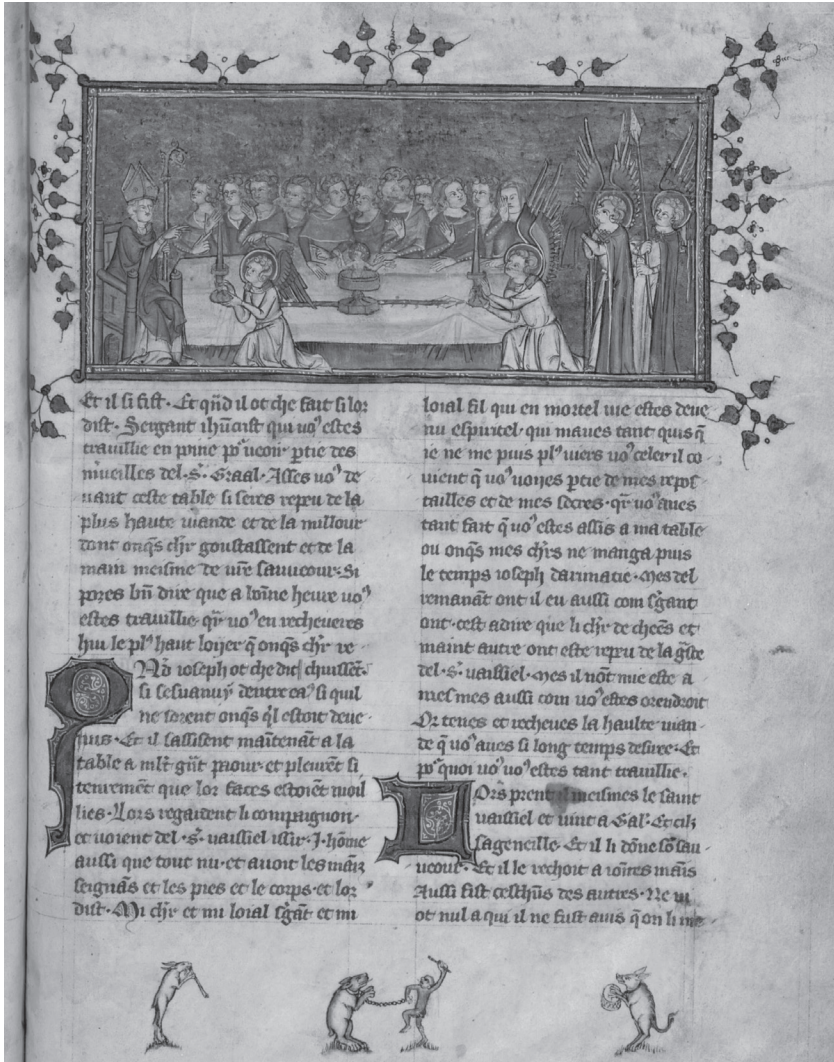 Et il si fist. Et qn̄d il ot che fait si lor
dist. Sergant ihūcrist qui vo᾽ estes
travillie en peine po᾽ veoir ptie des
m̄veilles del. S. Graal. Asses vo᾽ de
vant ceste table si seres repeu de la
plus haute viande et de la millour
dont onq̄s chr̄ goustassent et de la
main meisme de vr̄e sauveour. Si
pores bn̄ dire que a bōne heure vo᾽
estes travillie. qr̄ vo᾽ en recheveres
hui le pl᾽ haut loijer q̄ onq̄s chr̄ re
ioseph ot che dit
si sesvanuj dentre
ne sorent onq̄s q̄l estoit deve
nus. Et il sassisent maītenāt a la
table a ml̄t gn̄t paour. et pleurēt si
tenremēt que lor faces estoiēt moil
lies. Lors regardent li compaignon.
et voient del. S. vaissiel issir .J. hōme
aussi que tout nu. et avoit les maīs
seignās et les pies et le corps. et lor
dist. Mi chr̄ et mi loial sḡāt et mi
loial fil qui en mortel vie estes deve
nu espiritel. qui maves tant quis q̄
ie ne me puis pl᾽ viers vo᾽ celer il co
vient q̄ vo᾽ voijes ptie de mes repos
tailles et de mes secres. qr̄ vo᾽ aves
tant fait q̄ vo᾽ estes assis a ma table
ou onq̄s mes chr̄s ne manga puis
le temps ioseph darimatie. Mes del
remanāt ont il eu aussi com sḡant
ont. cest adire que li chr̄ de
maint autre ont este repeu de la gr̄sce
del. S. vaissiel. Mes il nōt mie este a
mesmes aussi com vo᾽ estes orendroit
Or tenes et recheves la haulte vian
de q̄ vo᾽ aves si long temps desiree. Et
po᾽ quoi vo᾽ vo᾽ estes tant travillie.
Lors prent il meismes le saint
vaissiel et vint a Gal. Et cil
sagenelle. Et il li dōne sō sau
veour. Et il le rechoit a ioītes maīs
Aussi fist des autres. Ne
ot nul a qui il ne fust avis q̄ on li me